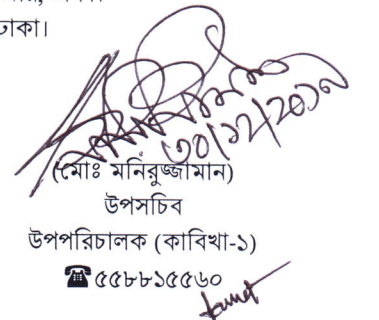 ঢাকা।
৩০/১২/২০১৯
(মোঃ মনিরুজ্জামান)
উপসচিব
উপপরিচালক (কাবিখা-১)
☎ ৫৫৮৮১৫৫৬০